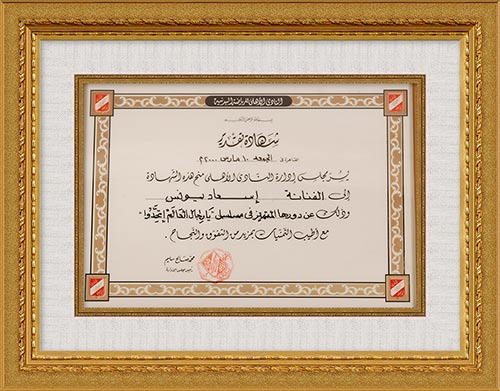 النادى الأهلى للرياضة البدنية
شهادة تقدير
القاهرة فى الجمعه ١٠ مارس ٢٠٠٠م
يسر مجلس إدارة النادى الأهلى منح هذه الشهادة
إلى الفنانة إسعاد يونس
وذلك عن دورها المتميز فى مسلسل "يا رجال العالم إتحدوا"
مع أطيب التمنيات بمزيد من التفوق والنجاح .
محمد صالح سليم
رئيس مجلس الإدارة